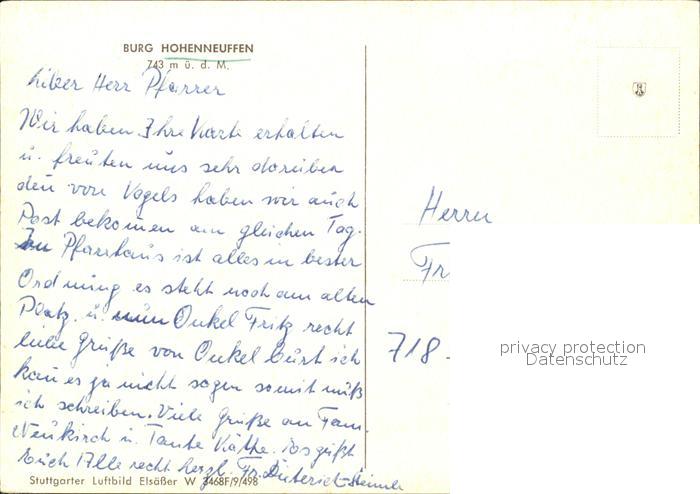 BURG HOHENNEUFFEN
743 m ü. d. M.
Lieber Herr Pfarrer
Wir haben Ihre Karte erhalten
u. freuten uns sehr darüber
den von Vogels haben wir auch
Post bekomen am gleichen Tag.
Im Pfarrhaus ist alles in bester
Ordnung es steht noch am alten
Platz. u. nun Onkel Fritz recht
liebe Grüße von Onkel Kurt ich
kan es ja nicht sagen somit muß
ich schreiben. Viele Grüße an Fam.
Neukirch u. Tante Käthe. Es grüßt
Euch Alle recht herzl. Fr. Dieterich-
Stuttgarter Luftbild Elsäßer W 3468F/9/498
Herrn
Fr
718.
privacy protection
Datenschutz